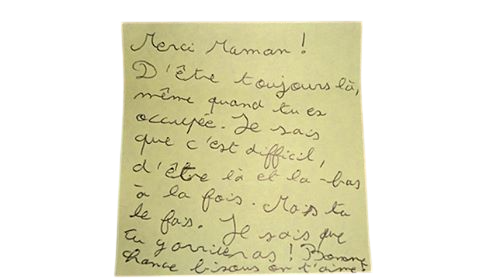 Merci Maman !
D'être toujours là,
même quand tu es
occupée. Je sais
que c'est difficil,
d'être là et la-bas
à la fois. Mais tu
le fais. Je sais que
tu y arriveras ! Bonne
chance bisous on t'aime !